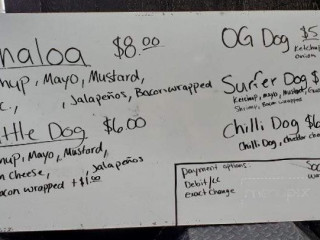 naloa $8.00
hup, Mayo, Mustard,
c., , Jalapeños, Bacon-wrapped
ttle Dog $6.00
hup, Mayo, Mustard,
m Cheese, , Jalapeños
acon wrapped +$1.00
OG Dog $5
Ketchup
onion
Surfer Dog $
Ketchup, Mayo, Mustard,
Shrimp, Bacon wrapped
Chilli Dog $6
Chilli Dog, cheddar chee
payment options
Debit/cc
exact change